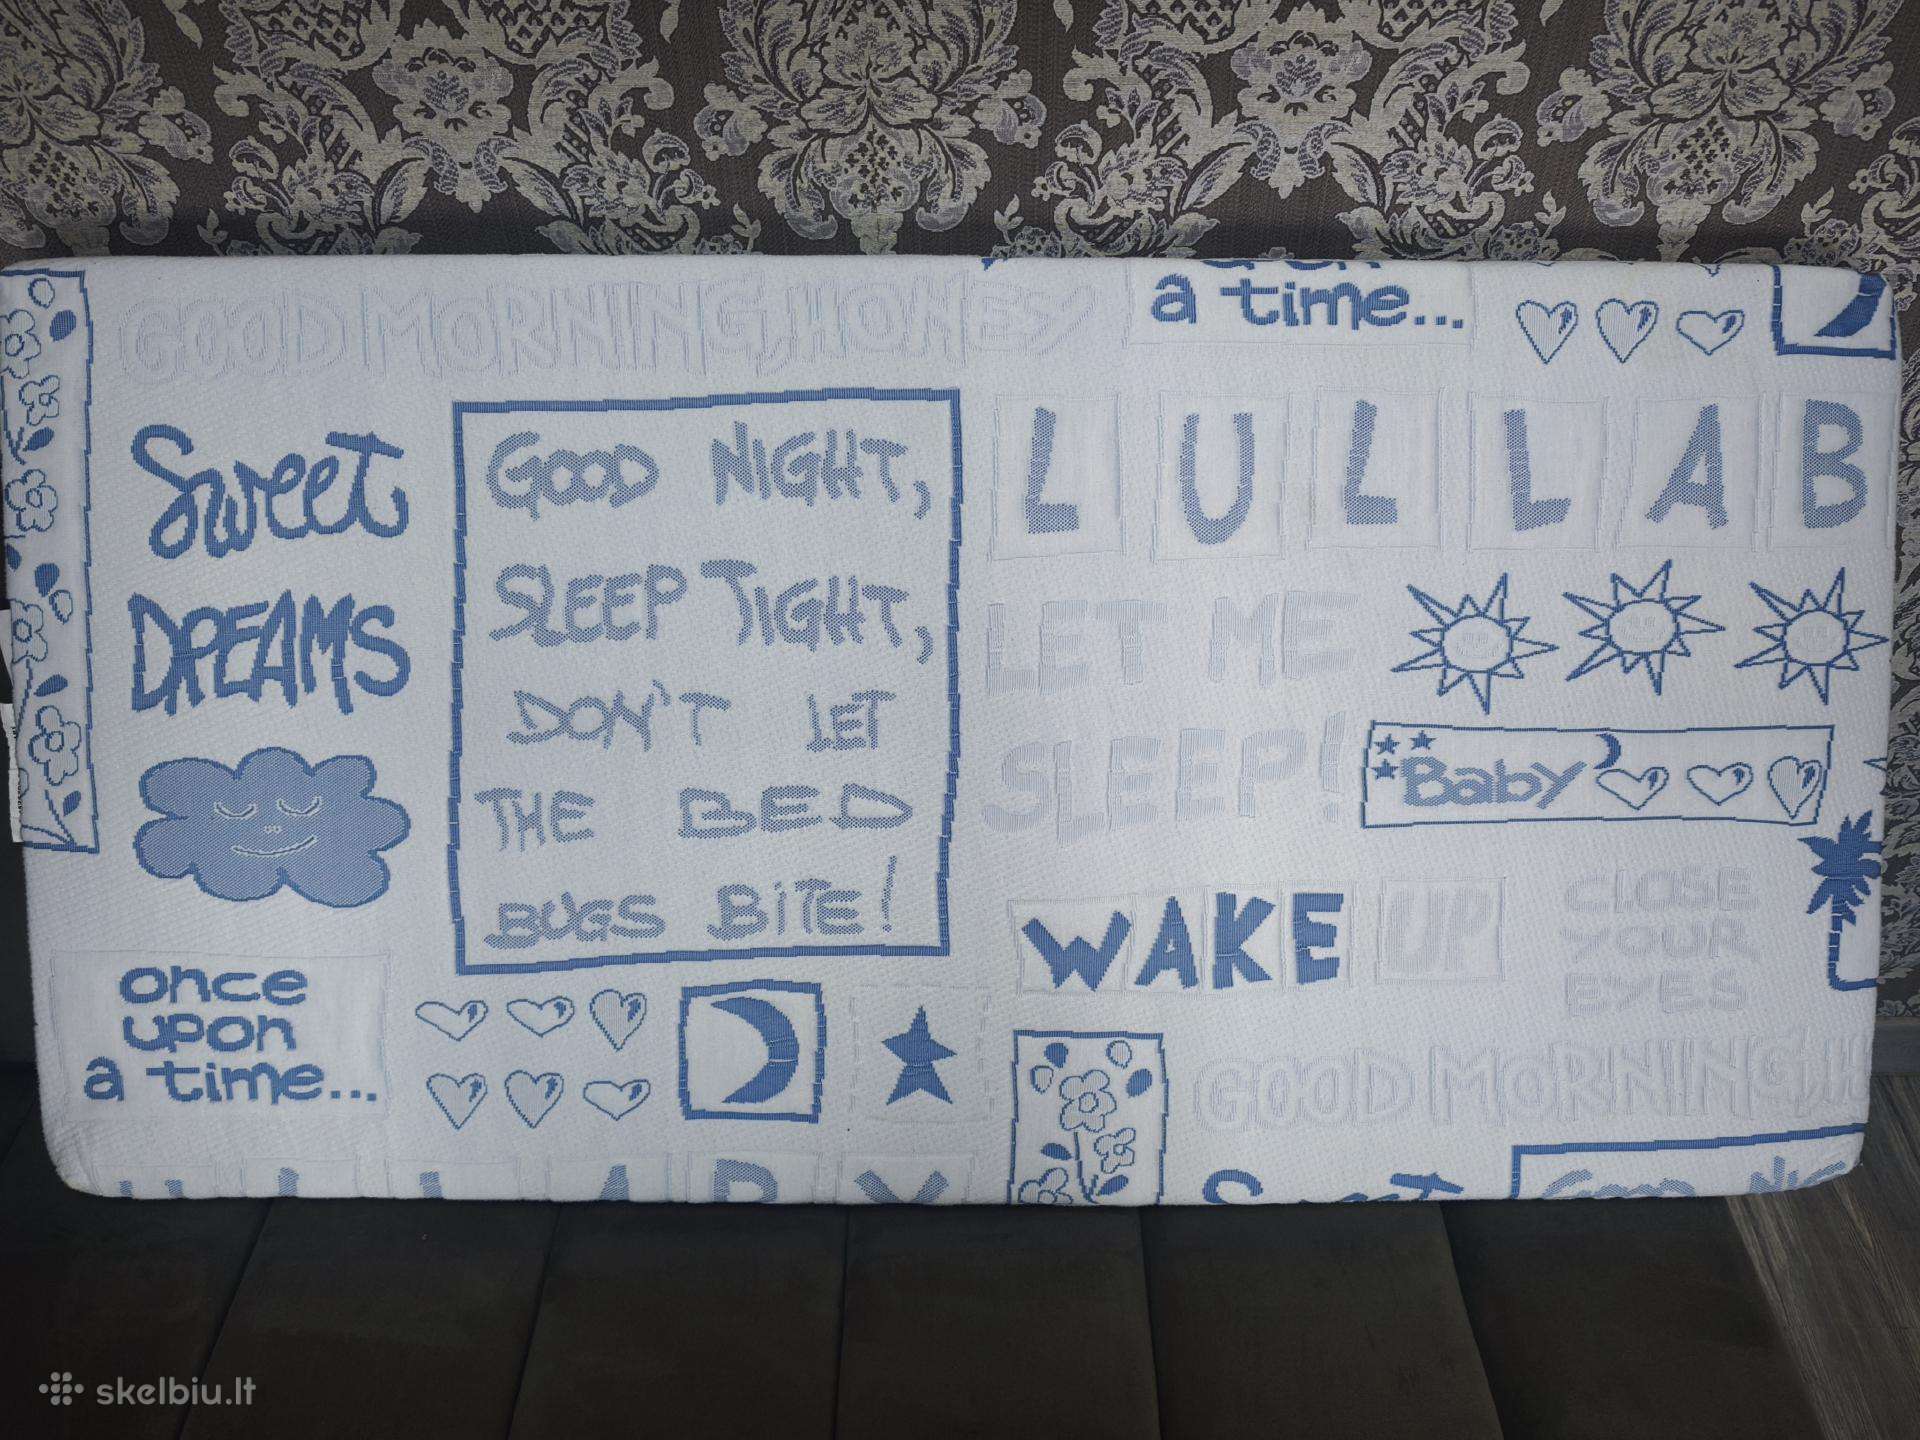 GOOD MORNING, HONEY
a time...
Sweet
DREAMS
GOOD NIGHT,
SLEEP TIGHT,
DON'T LET
THE BED
BUGS BITE!
LULLAB
LET ME
SLEEP!
Baby
WAKE UP
CLOSE
YOUR
EYES
once
upon
a time...
GOOD MORNING, H
Sweet
skelbiu.lt